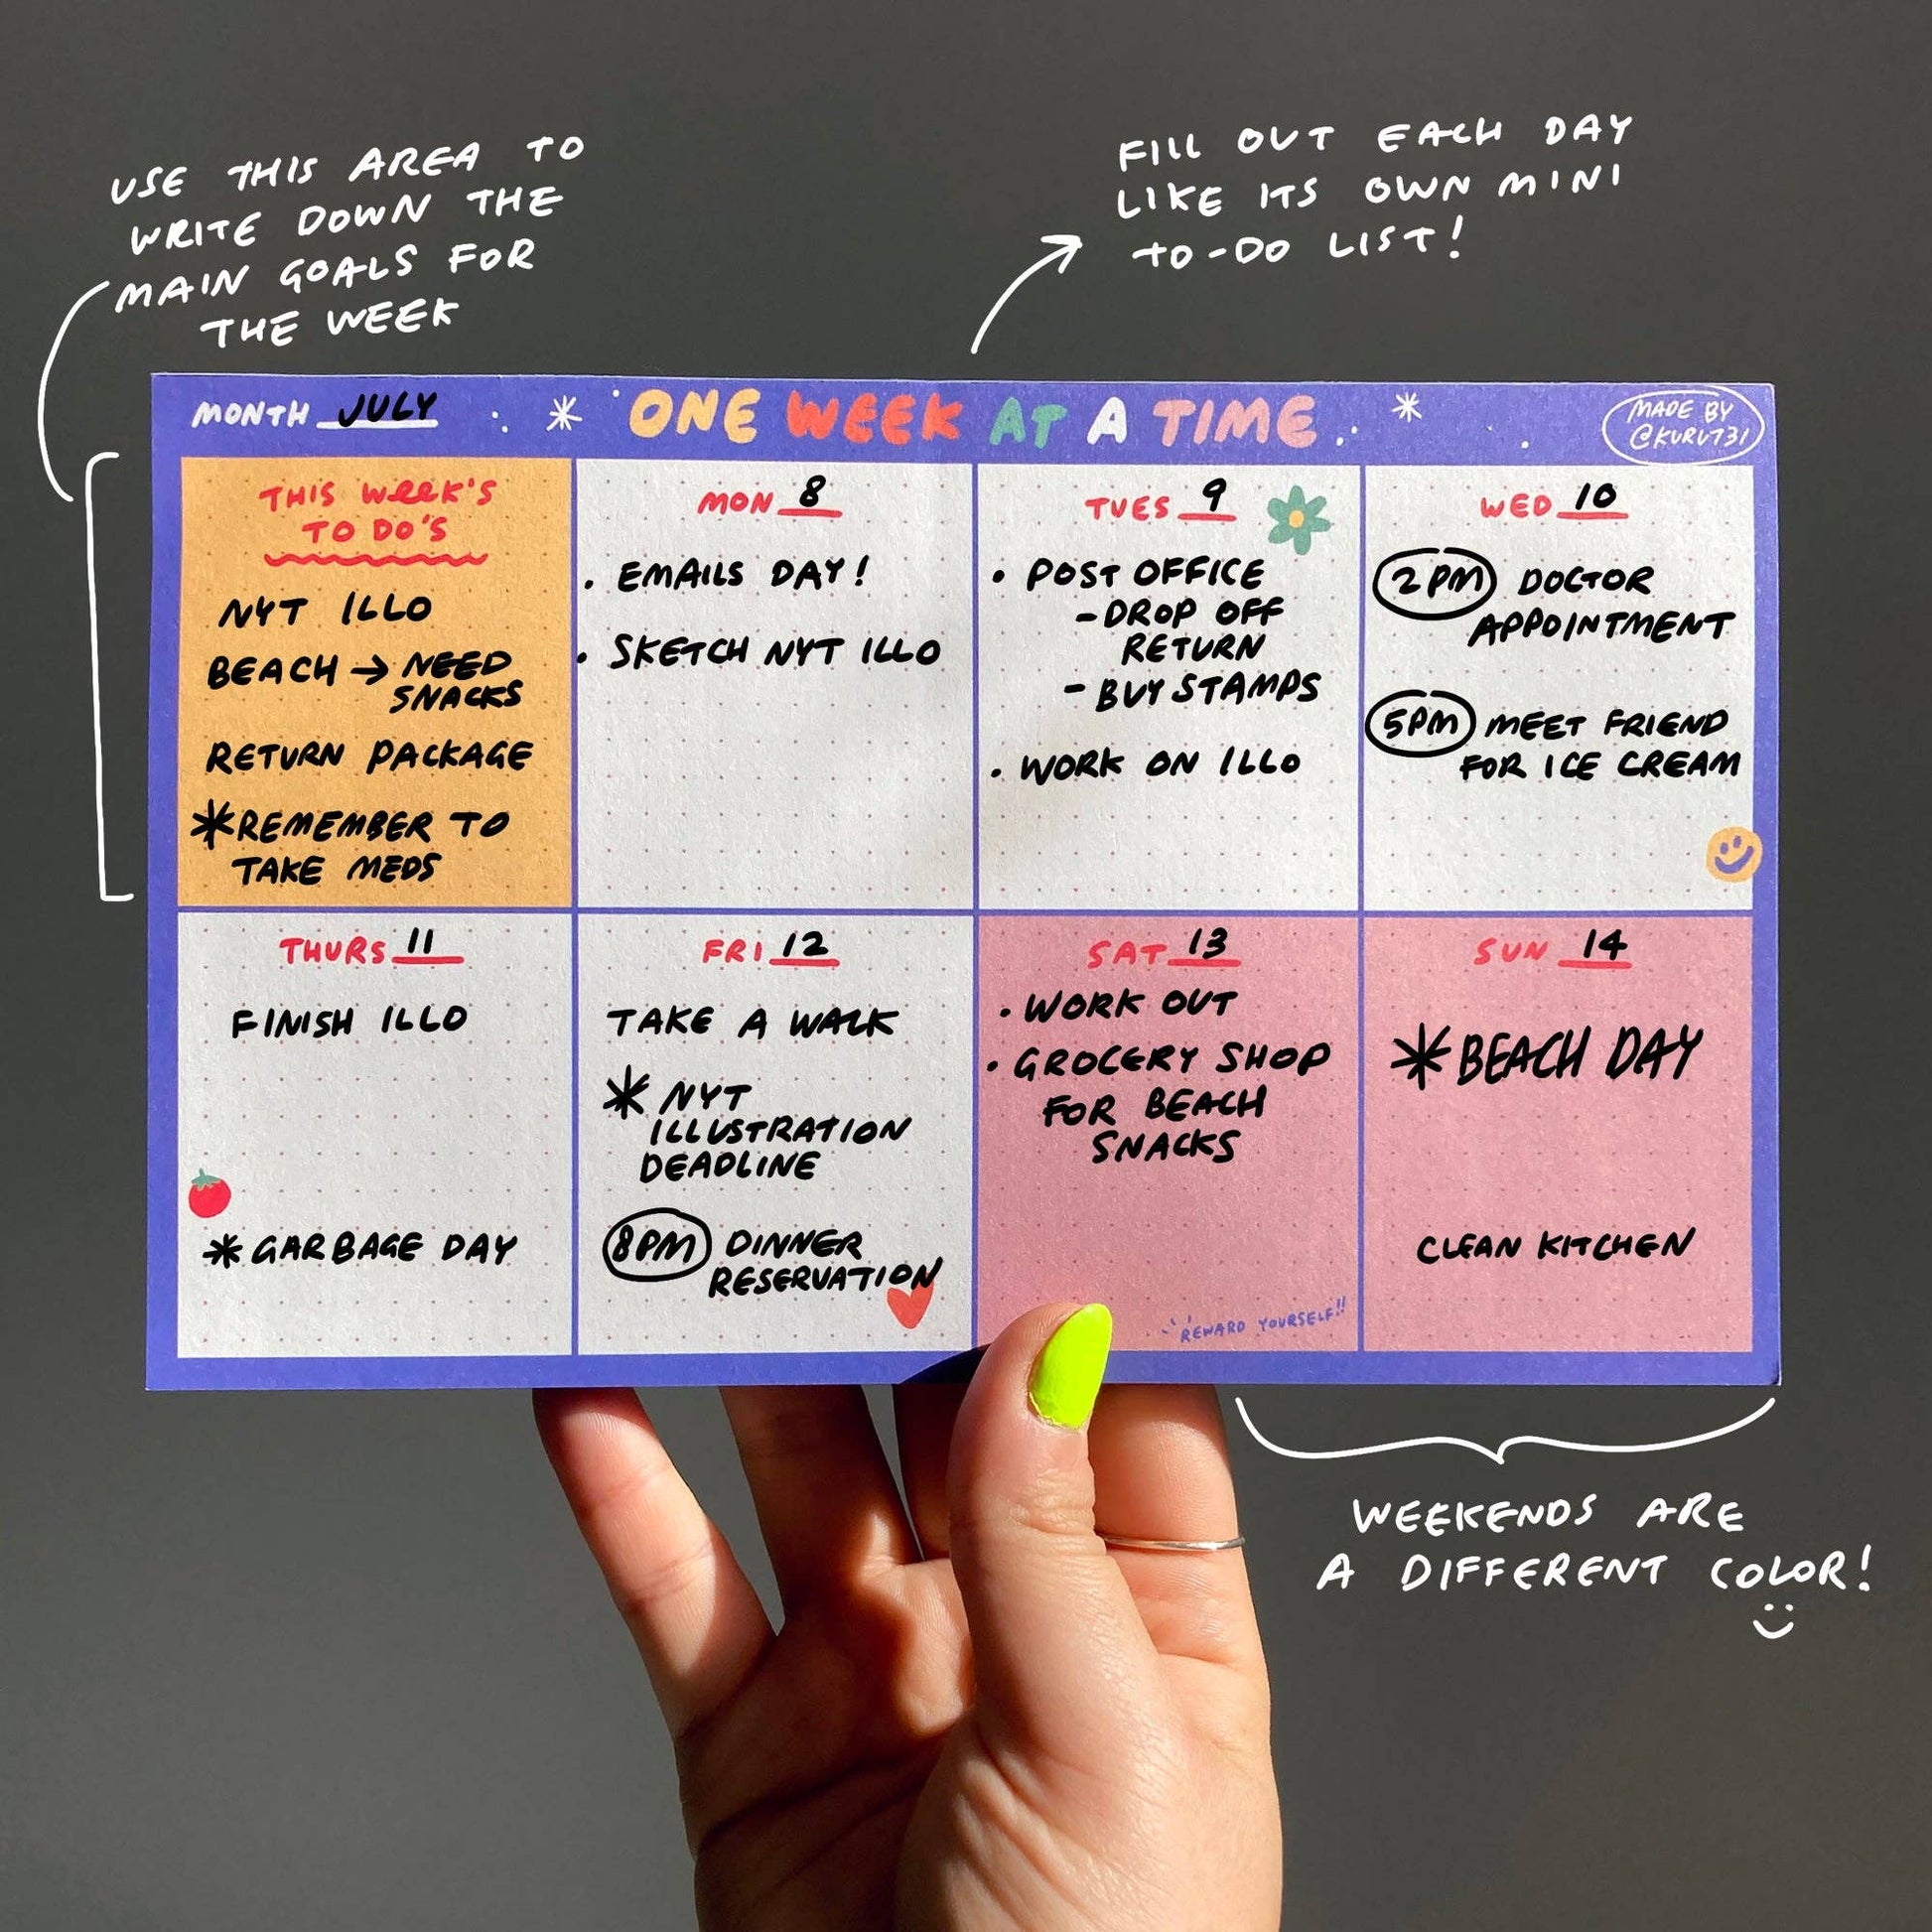 USE THIS AREA TO
WRITE DOWN THE
MAIN GOALS FOR
THE WEEK
FILL OUT EACH DAY
LIKE ITS OWN MINI
TO-DO LIST!
MONTH JULY
ONE WEEK AT A TIME
MADE BY
@KURU731
THIS WEEK'S
TO DO'S
NYT ILLO
BEACH → NEED
SNACKS
RETURN PACKAGE
*REMEMBER TO
TAKE MEDS
MON 8
• EMAILS DAY!
• SKETCH NYT ILLO
TUES 9
• POST OFFICE
-DROP OFF
RETURN
- BUY STAMPS
• WORK ON ILLO
WED 10
2PM DOCTOR
APPOINTMENT
5PM MEET FRIEND
FOR ICE CREAM
THURS 11
FINISH ILLO
*GARBAGE DAY
FRI 12
TAKE A WALK
* NYT
ILLUSTRATION
DEADLINE
8PM DINNER
RESERVATION
SAT 13
• WORK OUT
• GROCERY SHOP
FOR BEACH
SNACKS
REWARD YOURSELF!!
SUN 14
*BEACH DAY
CLEAN KITCHEN
WEEKENDS ARE
A DIFFERENT COLOR!